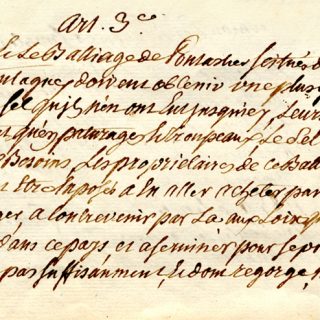 Art. 3.e
Le Balliage de Pontarlier
montagnes doivent obtenir une plus
sel qu'ils n'en ont eu jusqu'icy, leurs
paturages et troupeaux, le sel
Besoins, Les propriétaires de ce Ball
Etre Exposés a En aller acheter par
a Contrevenir par La aux Loix qui
dans ce pays et a se ruiner pour se pr
pas suffisanment, et dont regorge